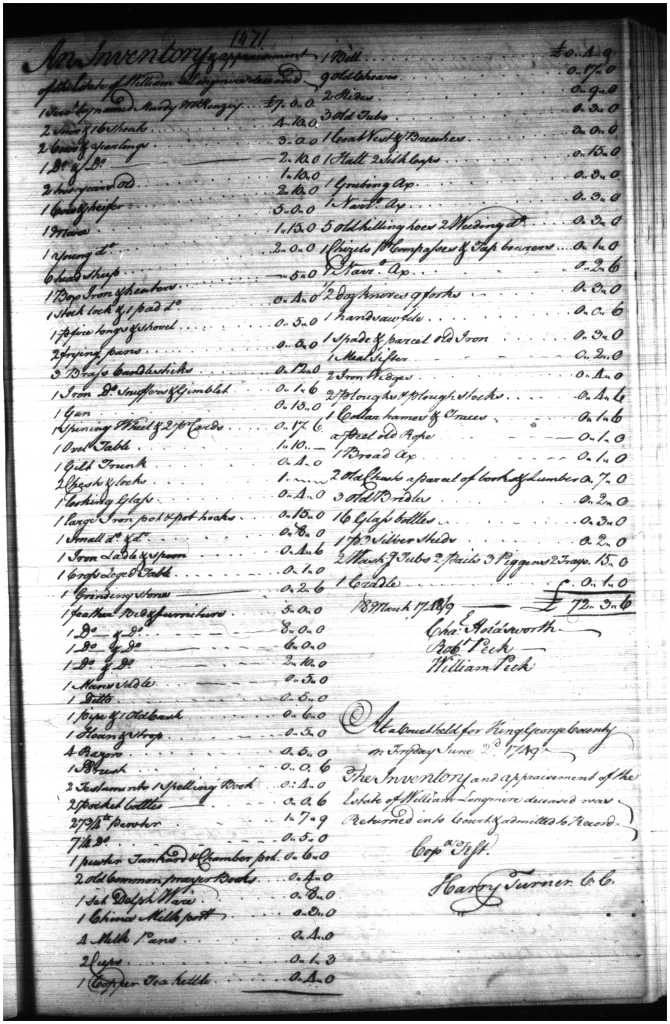 1471
An Inventory & appraisement
of the Estate of William Longmore deceased
1 Servt. by named Mardy McKenzey .. £7..0..0
2 Sows & 16 Shoats .. 4..10..0
2 Cows & yearlings .. 3..0..0
1 Do. & Do. 2..10..0
2 two years old .. 1..10..0
1 Cow & heifer .. 2..10..0
1 Mare .. 5..0..0
1 young do. .. 1..15..0
6 head sheep .. 2..0..0
1 Box Iron & heaters .. 5..0
1 stock lock & 1 pad do. 0..4..0
1 pr fire tongs & shovel .. 0..5..0
2 frying pans
3 Brass Candlesticks .. 0..12..0
1 Iron Do. Snuffers & Gimblet .. 0..1..6
1 Gun .. 0..15..0
1 Spining Wheel & 2 pr Cards .. 0..17..6
1 Ovel Table .. 1..10..
1 Gilt Trunk .. 0..4..0
2 Chests & locks .. 1..
1 looking Glass .. 0..4..0
1 large Iron pot & pot hooks .. 0..15..0
1 Small do. & do. .. 0..8..0
1 Iron Ladle & Spoon .. 0..4..6
1 Cross Leged Table .. 0..1..0
1 Grinding stone 0..2..6
1 feather Bed & furniture .. 5..0..0
1 Do. & do. 8..0..0
1 Do. & do. 6..0..0
1 Do. & Do. 2..10..0
1 Mans Sadle .. 0..5..0
1 Ditto 0..5..0
1 pipe & 1 Old Cask .. 0..6..0
1 Hoan & strop .. 0..5..0
4 Razors .. 0..5..0
1 Brush .. 0..0..6
2 Testaments 1 Spelling Book .. 0..4..0
2 pocket bottles .. 0..0..6
27 3/4 lb pewter .. 1..7..9
7 1/4 Do. .. 0..5..0
1 pewter Tankard & Chamber pot .. 0..6..0
2 old Common prayer Books .. 0..4..0
1 Set Delph Ware .. 0..8..0
1 China Milk pott .. 0..3..0
4 Milk Pans .. 0..4..0
2 Cups .. 0..1..3
1 Copper Tea kettle .. 0..4..0
1 Bell .. £0..4..9
9 old Chears .. 0..17..0
2 Hides .. 0..9..0
3 Old Tubs .. 0..3..0
1 Coat Vest & Breeches .. 0..0..0
1 Hatt 2 Silk Caps .. 0..15..0
1 Grubing Ax .. 0..3..0
1 Narro. Ax .. 0..3..0
5 old hilling hoes 2 Weeding do. .. 0..3..0
1 Chizels 1 pr Compasses & Tap boarers .. 0..1..0
1 Narro. Ax .. 0..2..6
1/2 doz knives 9 forks .. 0..3..0
1 hand saw file .. 0..0..6
1 Spade & parcel old Iron .. 0..3..0
1 Meal Sifter .. 0..2..0
2 Iron Wedges .. 0..4..0
2 ploughs & plough stocks .. 0..4..6
1 Collar hames & Traces .. 0..1..6
a pcel old Rope 0..1..0
1 Broad Ax .. 0..1..0
2 old Chests a parcel of books & lumber 0..7..0
3 Old Bridles .. 0..2..0
16 Glass bottles .. 0..3..0
1 pr Silver Studs .. 0..2..0
2 Wash Tubs 2 pails 3 Piggins 2 Trays .. 15..0
1 Cradle £ 0..1..0
18 March 1748/9 £ 72..3..6
Chas. Holdsworth
Robt. Peck
William Peck
At a Court held for King George County
on Fryday June 2d. 1749
The Inventory and appraisement of the
Estate of William Longmore deceased was
Returned into Court & admitted to Record
Copa. Test.
Harry Turner C. C.